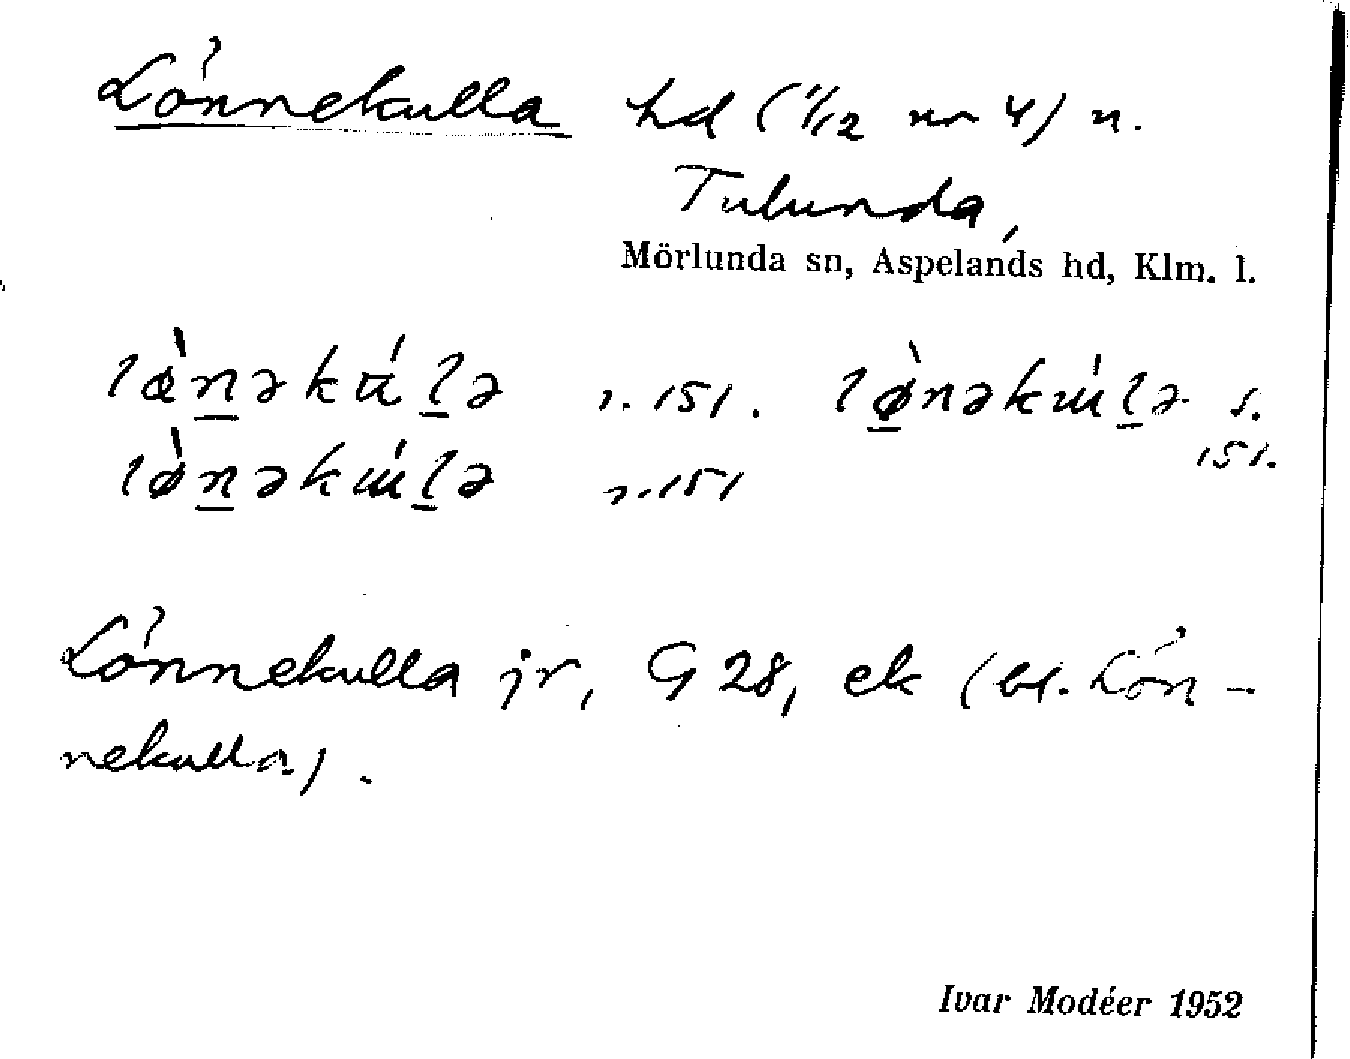 Lönnekulla hd (1/12 nr 4) n.
Tulunda,
Mörlunda sn, Aspelands hd, Klm. l.
lø̀nəkúlə s. 151. lø̀nəkɯ́lə s.
151.
lø̀nəkɯ́lə s. 151
Lönnekulla jr, G 28, ek (bl. Lön-
nekulla).
Ivar Modéer 1952